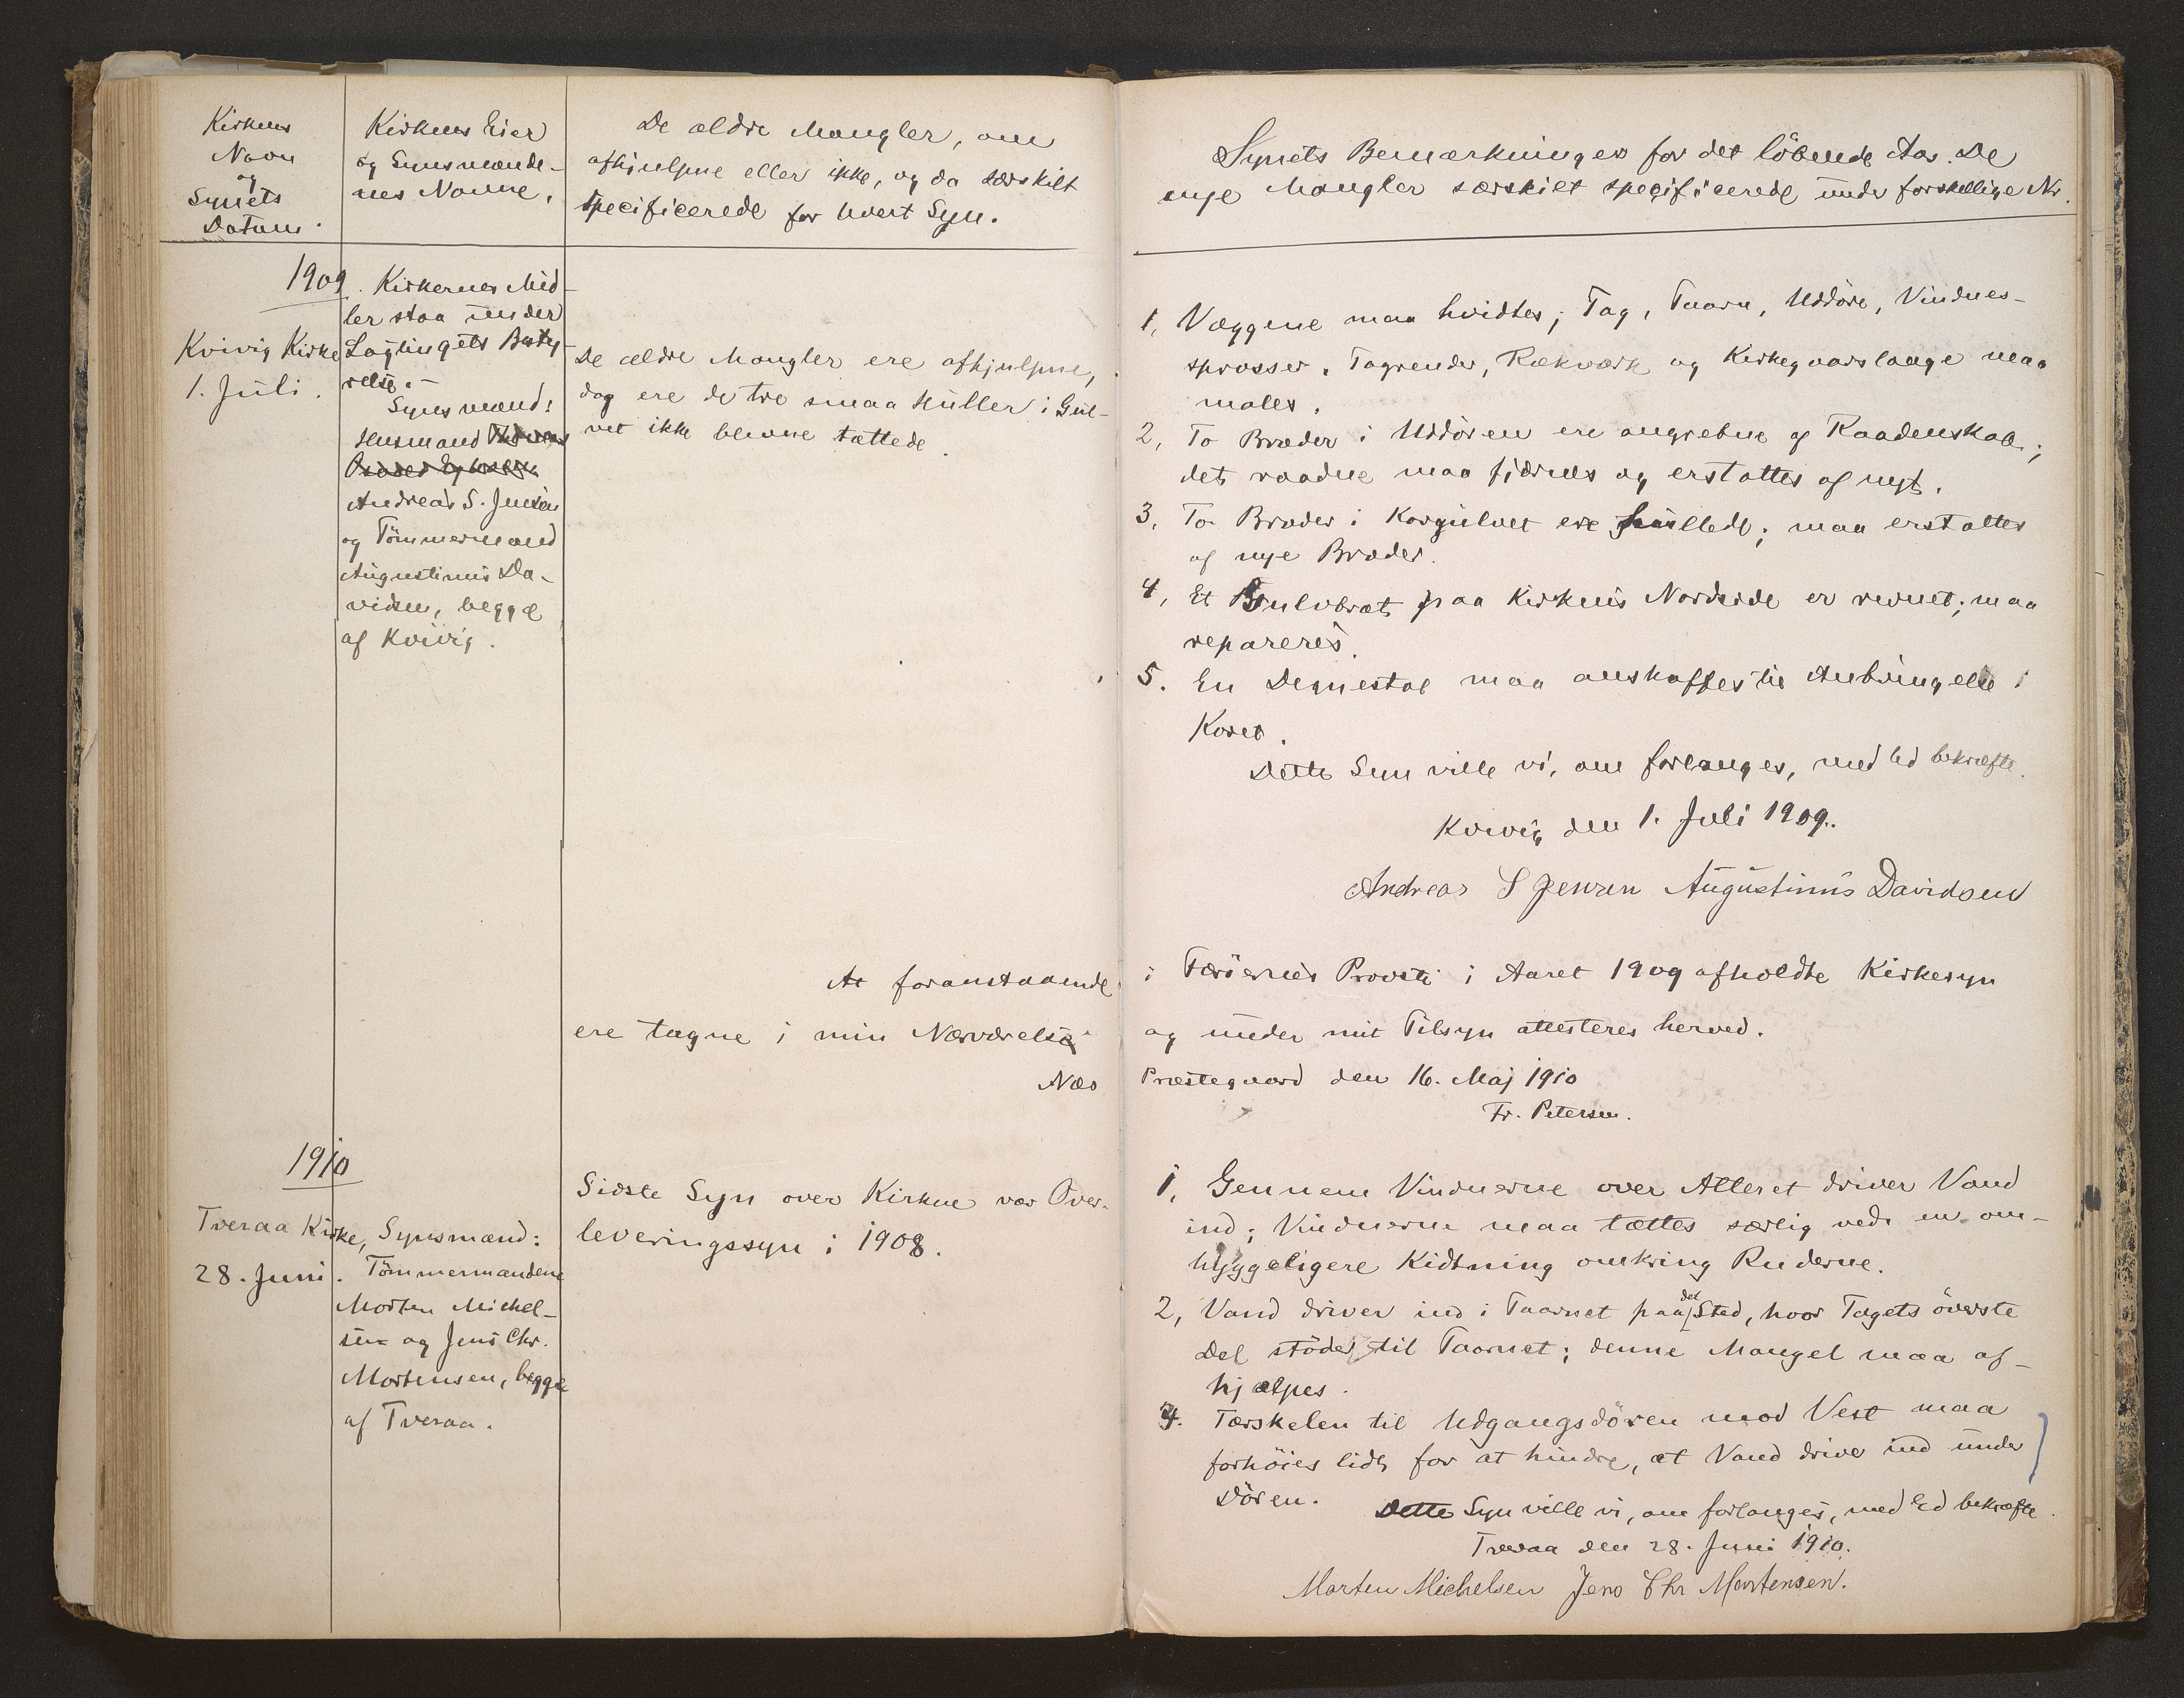 Kirkens
Navn
og
Synets
Datum.
Kirkens Eier
og Synsmænde-
nes Navne.
De ældre Mangler, om
afhjulpne eller ikke, og da særskilt
specificerede for hvert Syn.
1909.
Kvivig Kirke
1. Juli.
Kirkernes Mid-
ler staa under
Lagtingets Besty-
relse.-
Synsmænd:
Husmand
Andreas S. Jensen
og Tömmermand
Augustinus Da-
vidsen, begge
af Kvivig.
De ældre Mangler ere afhjulpne,
dog ere de tre smaa Huller i Gul-
vet ikke blevne tættede.
At foranstaaende
ere tagne i min Nærværelse
Næs
1910
Tveraa Kirke,
28. Juni.
Synsmænd:
Tömmermændene
Morten Michel-
sen og Jens Chr.
Mortensen, begge
af Tveraa.
Sidste Syn over Kirken var Over-
leveringssyn i 1908.
Synets Bemærkninger for det löbende Aar. De
nye Mangler særskilt specificerede under forskellige Nr.
1, Væggene maa hvidtes; Tag, Taarn, Uddöre, Vindues-
sprosser, Tagrender, Rækværk og Kirkegaardslaage maa
males.
2, To Bræder i Uddören ere angrebne af Raadenskab;
det raadne maa fjærnes og erstattes af nyt.
3, To Bræder i Korgulvet ere hullede; maa erstattes
af nye Bræder.
4, Et Gulvbræt paa Kirkens Nordside er revnet; maa
repareres.
5. En Degnestol maa anskaffes til Anbringelse i
Koret.
Dette Syn ville vi, om forlanges, med Ed bekræfte.
Kvivig den 1. Juli 1909.
Andreas S Jensen Augustinus Davidsen
i Færöernes Provsti i Aaret 1909 afholdte Kirkesyn
og under mit Tilsyn attesteres herved.
Præstegaard den 16. Maj 1910
Fr. Petersen.
1, Gennem Vinduerne over Alteret driver Vand
ind; Vinduerne maa tættes særlig ved en om-
hyggeligere Kidtning omkring Ruderne.
2, Vand driver ind i Taarnet paa det Sted, hvor Tagets överste
Del stöder til Taarnet; denne Mangel maa af-
hjælpes.
3. Tærskelen til Udgangsdören mod Vest maa
forhöies lidt for at hindre, at Vand driver ind under
Dören.
Dette Syn ville vi, om forlanges, med Ed bekræfte.
Tveraa den 28. Juni 1910.
Morten Michelsen Jens Chr Mortensen.